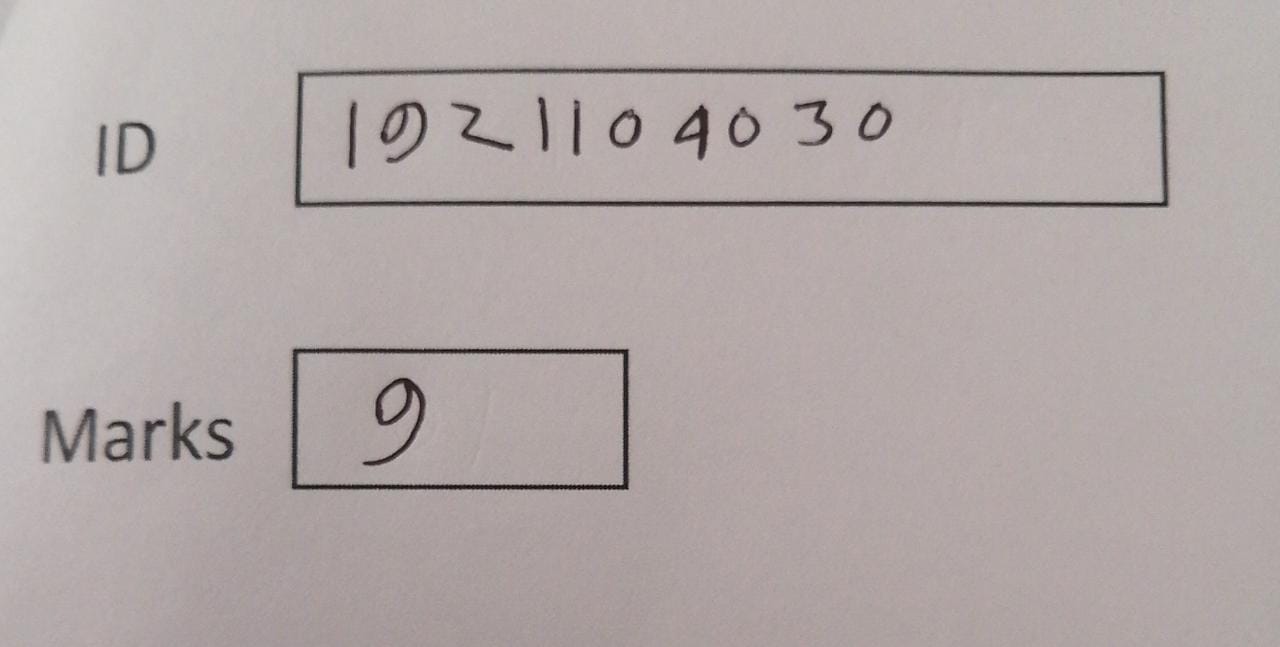 ID 1921104030
Marks 9